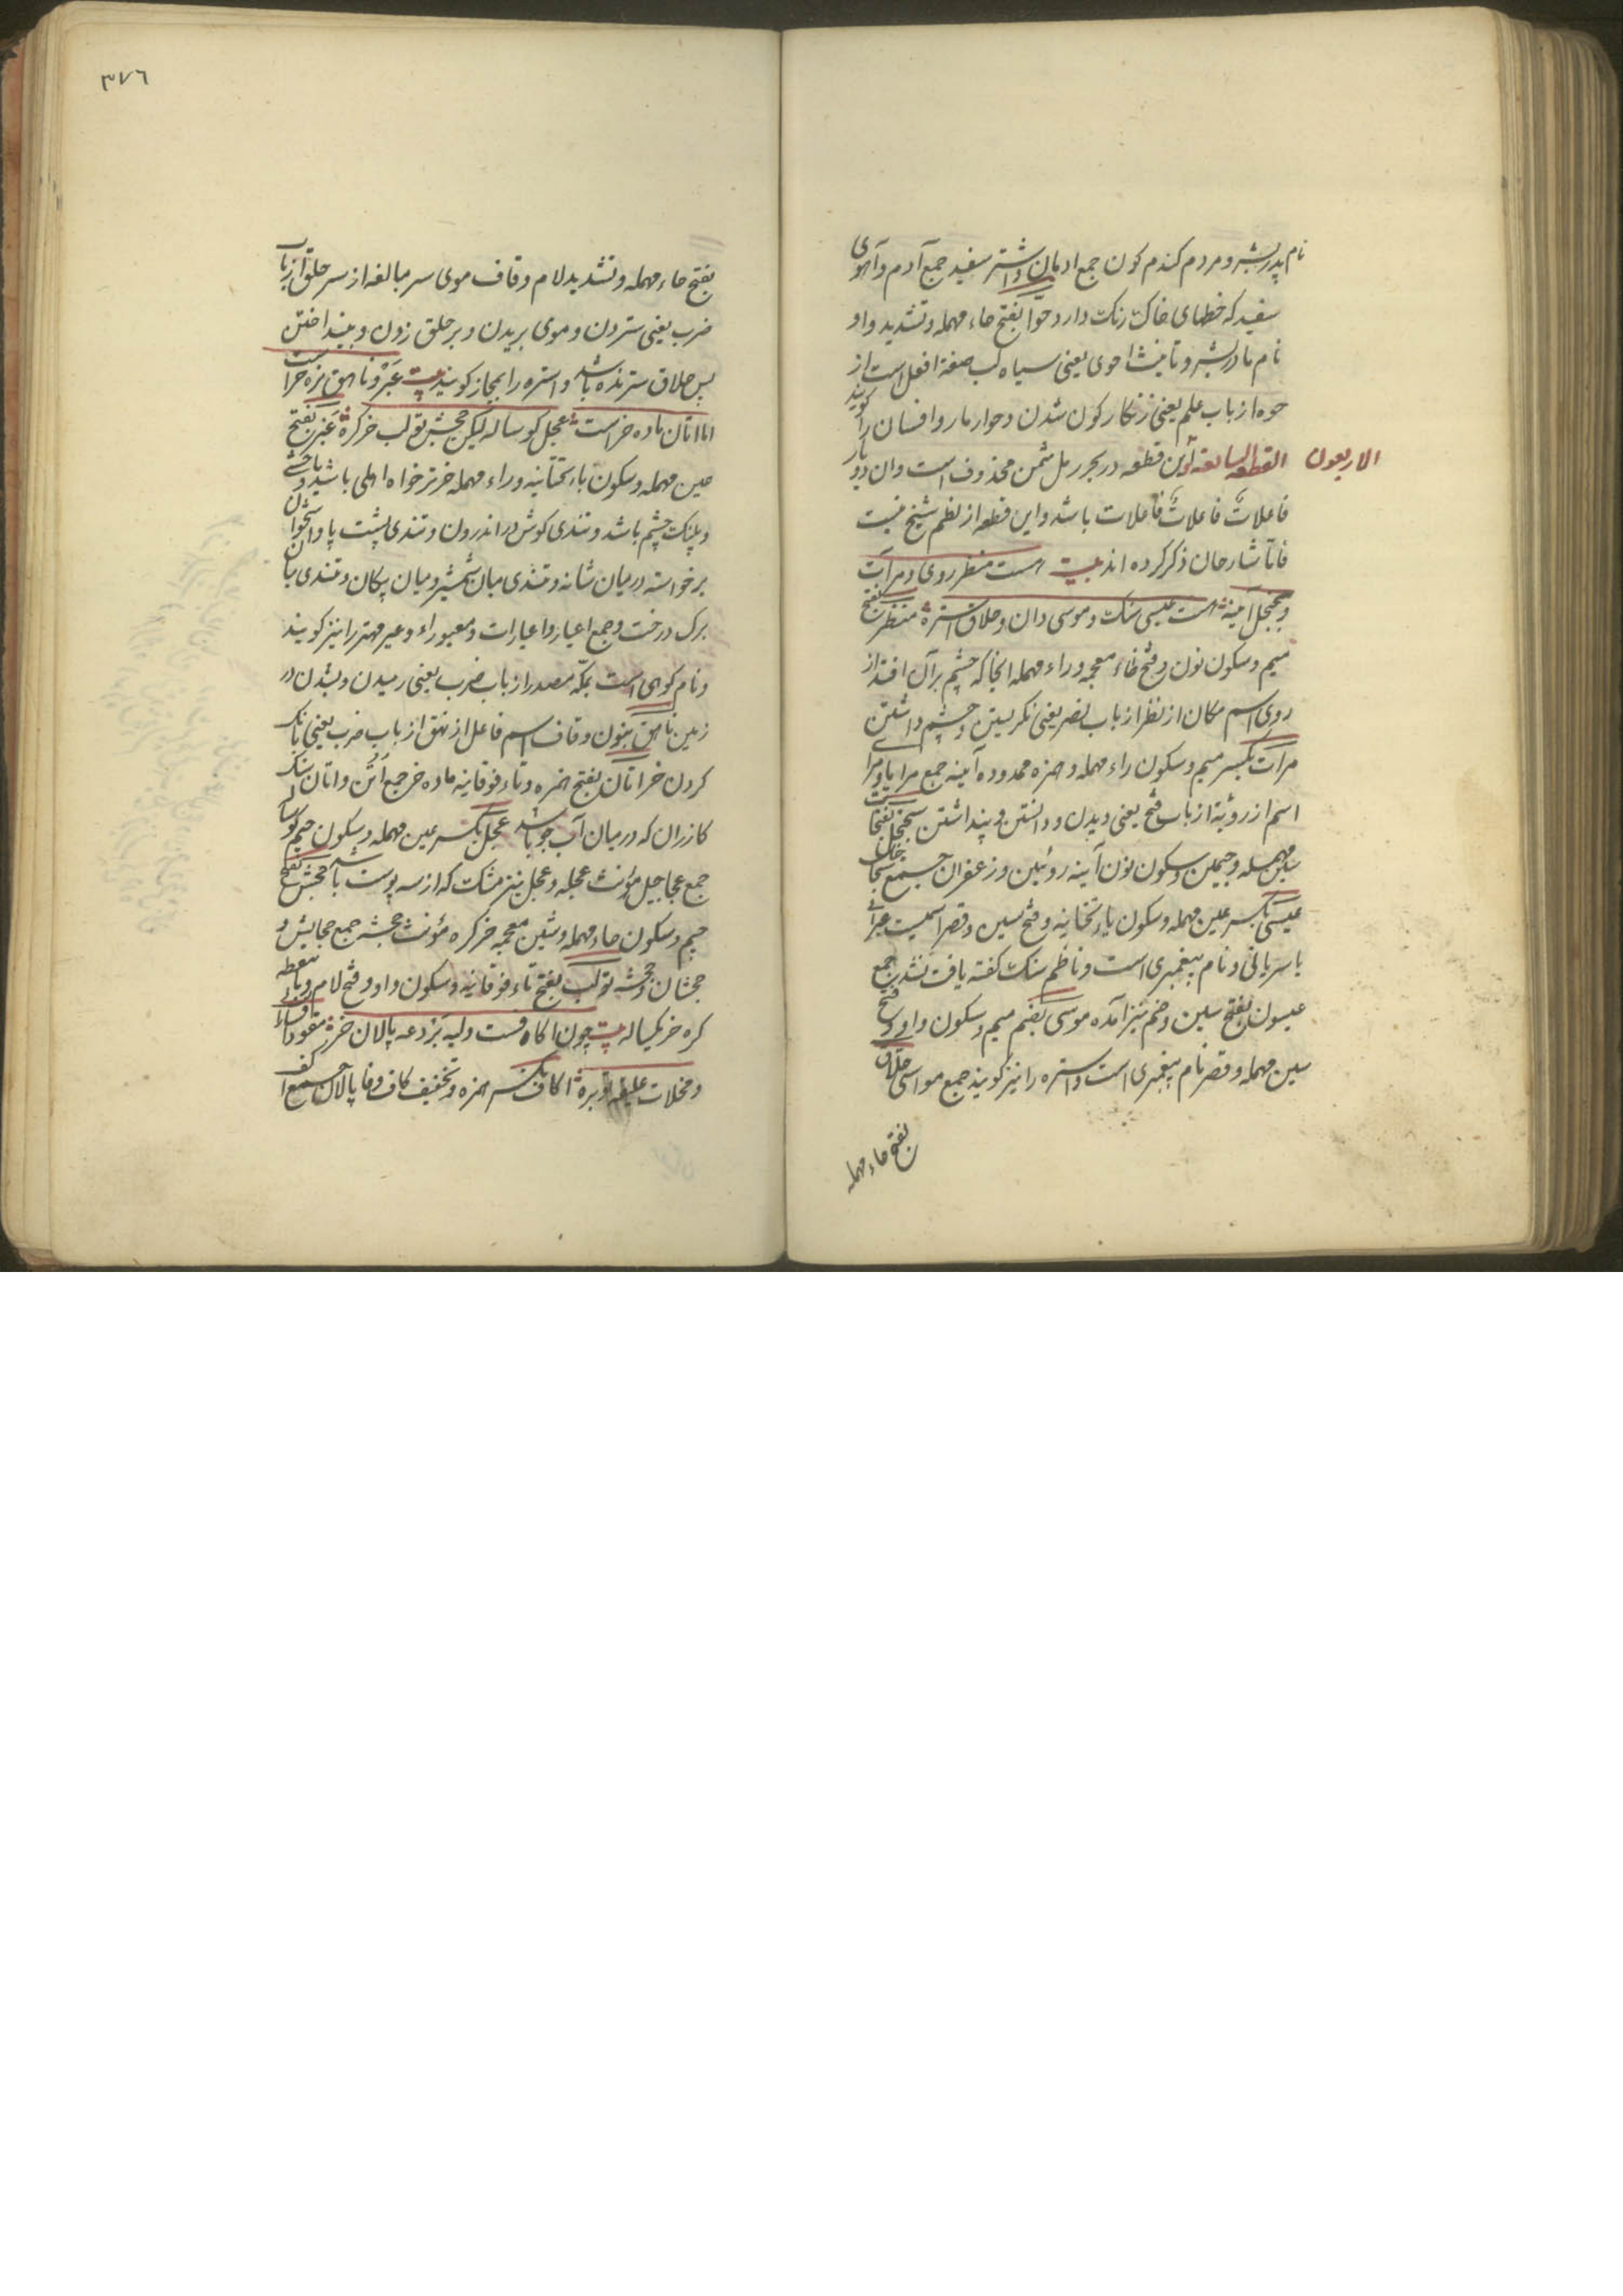 نام پدر بشر و مردم کندم کون جمع ادمان و اشتر سفید جمع آدم و آهوی
سفید که خطهای خاک رنک دارد حوا بفتح حاء مهمله و تشدید واو
نام مادر بشر و تانیث احوی یعنی سیاه لب صفة افعل است از
حوه از باب علم یعنی زنکار کون شدن و حوا مار و افسان را کویند
القطعه السابعه و الاربعون این قطعه در بحر رمل مثمن محذوف است و ان دو بار
فاعلات فاعلات فاعلات باشد و این قطعه از نظم شیخ نیست
فاتا شارحان ذکر کرده اند بیت هست منظر روی و مرآت
و سجنجل آینه است عیسی سنک و موسی دان و حلاق استره منظر بفتح
میم و سکون نون و فتح ظاء معجمه و راء مهمله انجا که چشم بر آن افتد از
روی اسم مکان از نظر از باب نصر یعنی نکریستن و چشم داشتن
مرآت بکسر میم و سکون راء مهمله و همزه ممدوده آینه جمع مرایا و مرا
اسم از رویة از باب فتح یعنی دیدن و دانستن و پنداشتن سجنجل بفتح
سین مهمله و جیمین و سکون نون آینه روئین و زعفران جمع
عیسی بکسر عین مهمله و سکون یاء تحتانیه و فتح سین و قصر اسمیست عبرانی
یا سریانی و نام پیغمبری است و ناظم سنک کفته یافت نشد جمع
عیسون بفتح سین و ضم نیز آمده موسی بضم میم و سکون واو و فتح
سین مهمله و قصر نام پیغمبری است و استره را نیز کویند جمع مواسی حلاق
بفتح حاء مهمله
۳۷۶
بفتح حاء مهمله و تشدید لام و قاف موی سر مبالغه از سر حلق از باب
ضرب یعنی ستردن و موی بریدن و بر حلق زدن و بینداختن
پس حلاق سترنده باشد و استره را بمجاز کویند بیت عیر و ناهق نره خر است
اما اتان ماده خر است عجل کوساله لیکن جحش تولب خر کره عیر بفتح
عین مهمله و سکون یاء تحتانیه و راء مهمله خر نر خواه اهلی باشد یا وحشی
و پلک چشم باشد و تندی کوش در اندرون و تندی پشت پا و استخوان
برخواسته در میان شانه و تندی میان شمشیر و میان پیکان و تندی میان
برک درخت و جمع اعیار و اعیارات و معیوراء و عیر مهتر را نیز کویند
و نام کوهی است بمکه مصدر از باب ضرب یعنی رمیدن و بشدن در
زمین ناهق بنون و قاف اسم فاعل از نهق از باب ضرب یعنی بانک
کردن خر اتان بفتح همزه و تاء فوقانیه ماده خر جمع اتن و اتان سنک
کازران که در میان آب جو باشد عجل بکسر عین مهمله و سکون جیم کوساله
جمع عجاجیل مؤنث عجله و عجل نیز مشک که از سه پوست باشد جحش بفتح
جیم و سکون حاء مهمله و شین معجمه خر کره مؤنث جحشه جمع جحایش و
جحشان و جحشه تولب بفتح تاء فوقانیه و سکون واو و فتح لام و باء
کره خر یکساله بیت چون اکاف است و لیه بردعه پالان خر مقود افسار
و مخلات علیقه توبره اکاف بکسر همزه و تخفیف کاف و فا پالان جمع اکف